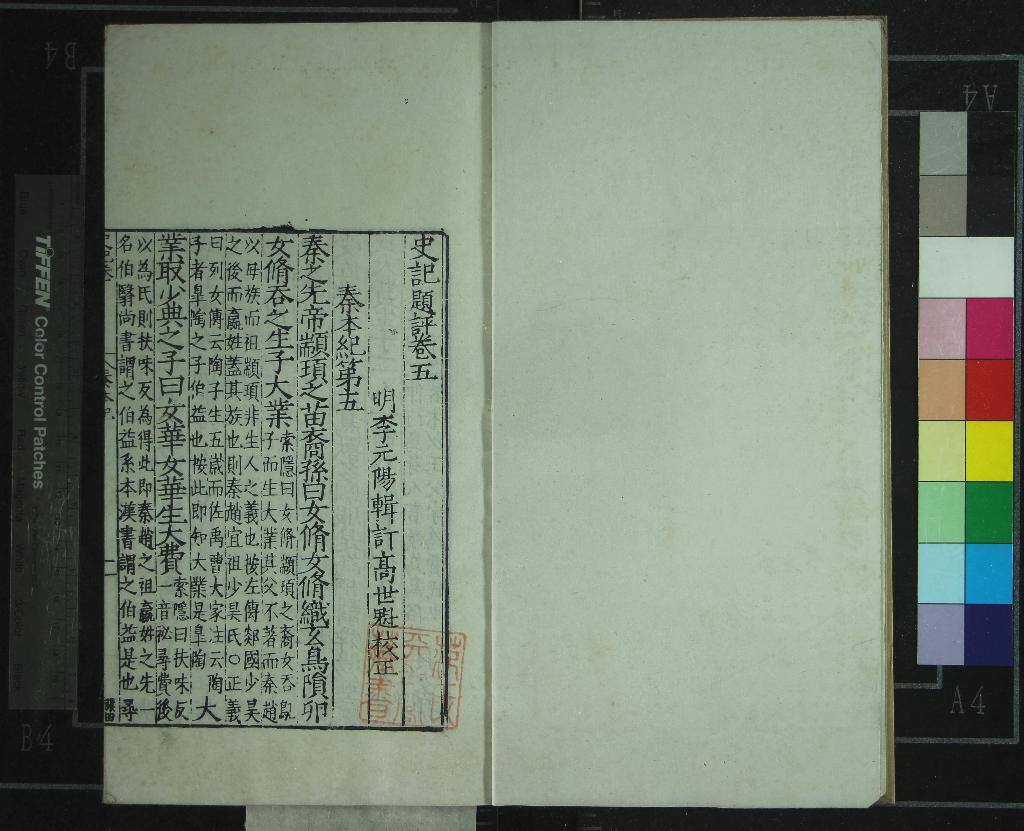 史記題評卷五
明李元陽輯訂高世魁校正
秦本紀第五
秦之先帝顓頊之苗裔孫曰女脩女脩織玄鳥隕卵
女脩吞之生子大業索隱曰女脩顓頊之裔女吞鳦
子而生大業其父不著而秦趙
以母族而祖顓頊非生人之義也按左傳郯國少昊
之後而嬴姓蓋其族也則秦趙宜祖少昊氏○正義
曰列女傳云陶子生五歲而佐禹曹大家注云陶
子者皐陶之子伯益也按此即知大業是皐陶
大
業取少典之子曰女華女華生大費索隱曰扶味反
一音祕尋費後
以為氏則扶味反為得此即秦趙之祖嬴姓之先一
名伯翳尚書謂之伯益系本漢書謂之伯益是也尋
TIFFEN Color Control Patches
B4
B4
A4
A4